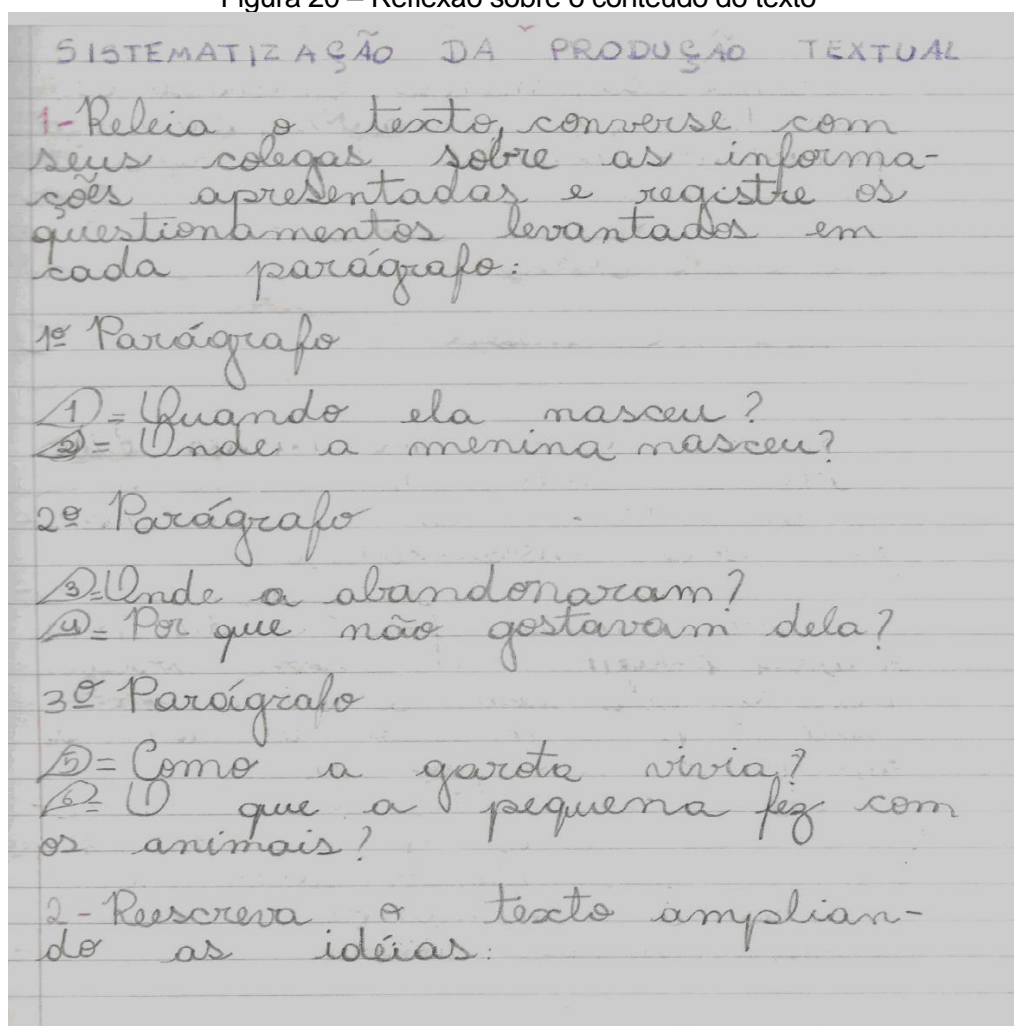 Figura 20 – Reflexão sobre o conteúdo do texto
SISTEMATIZAÇÃO DA PRODUÇÃO TEXTUAL
1-Releia o texto, converse com
seus colegas sobre as informa-
ções apresentadas e registre os
questionamentos levantados em
cada parágrafo:
1º Parágrafo
1= Quando ela nasceu?
2= Onde a menina nasceu?
2º Parágrafo
3= Onde a abandonaram?
4= Por que não gostavam dela?
3º Parágrafo
5= Como a garota vivia?
6= O que a pequena fez com
os animais?
2- Reescreva o texto amplian-
do as idéias: